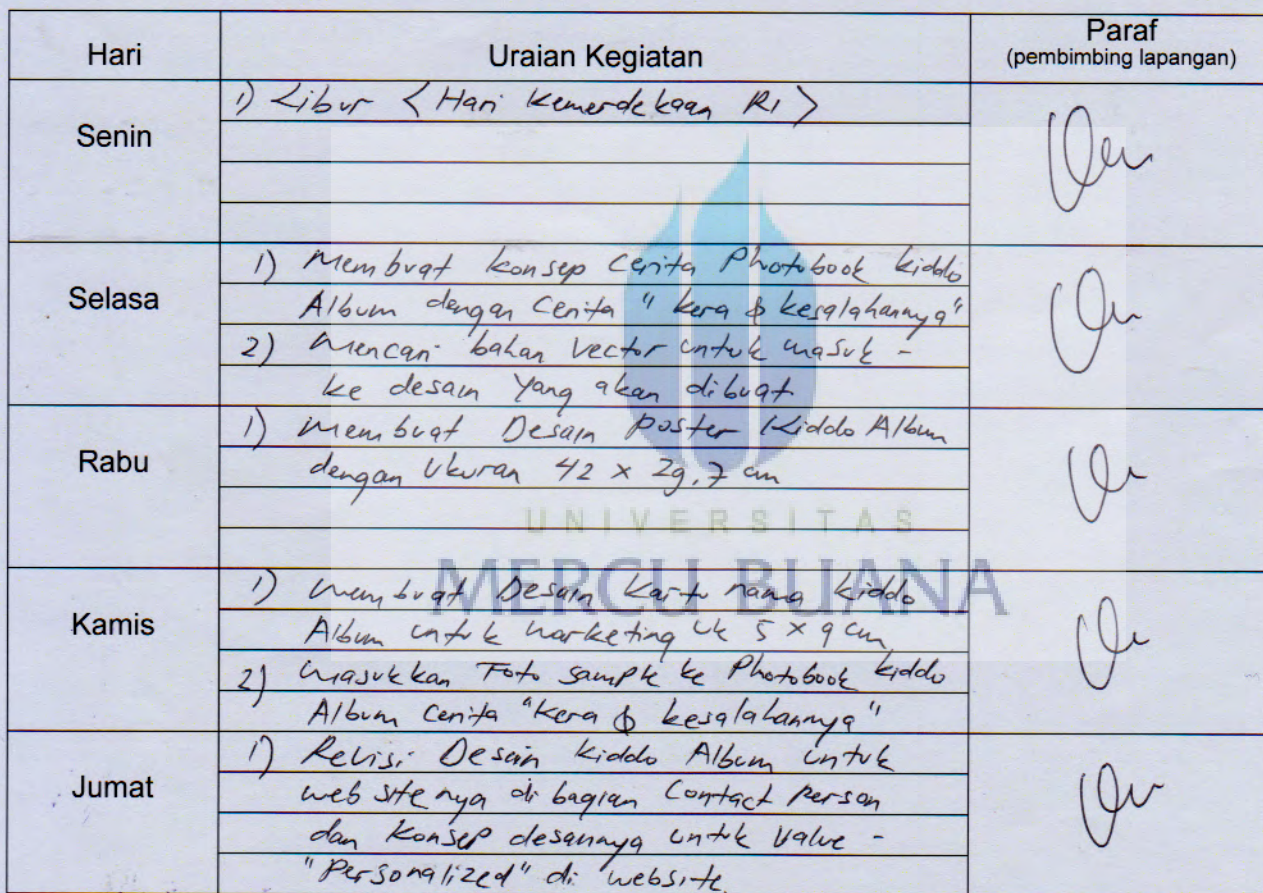 Hari Uraian Kegiatan Paraf
(pembimbing lapangan)
Senin
1) Libur < Hari Kemerdekaan RI >
Selasa
1) Membuat konsep Cerita Photobook kiddo
Album dengan Cerita "kera & kesalahannya"
2) Mencari bahan Vector untuk masuk -
ke desain yang akan dibuat
Rabu
1) Membuat Desain Poster Kiddo Album
dengan Ukuran 42 x 29,7 cm
UNIVERSITAS
MERCU BUANA
Kamis
1) Membuat Desain Kartu nama kiddo
Album untuk marketing Uk 5 x 9 cm
2) Masukkan Foto sample ke Photobook kiddo
Album Cerita "Kera & kesalahannya"
Jumat
1) Revisi Desain kiddo Album untuk
website nya di bagian Contact Person
dan Konsep desannya untuk Value -
"Personalized" di website.